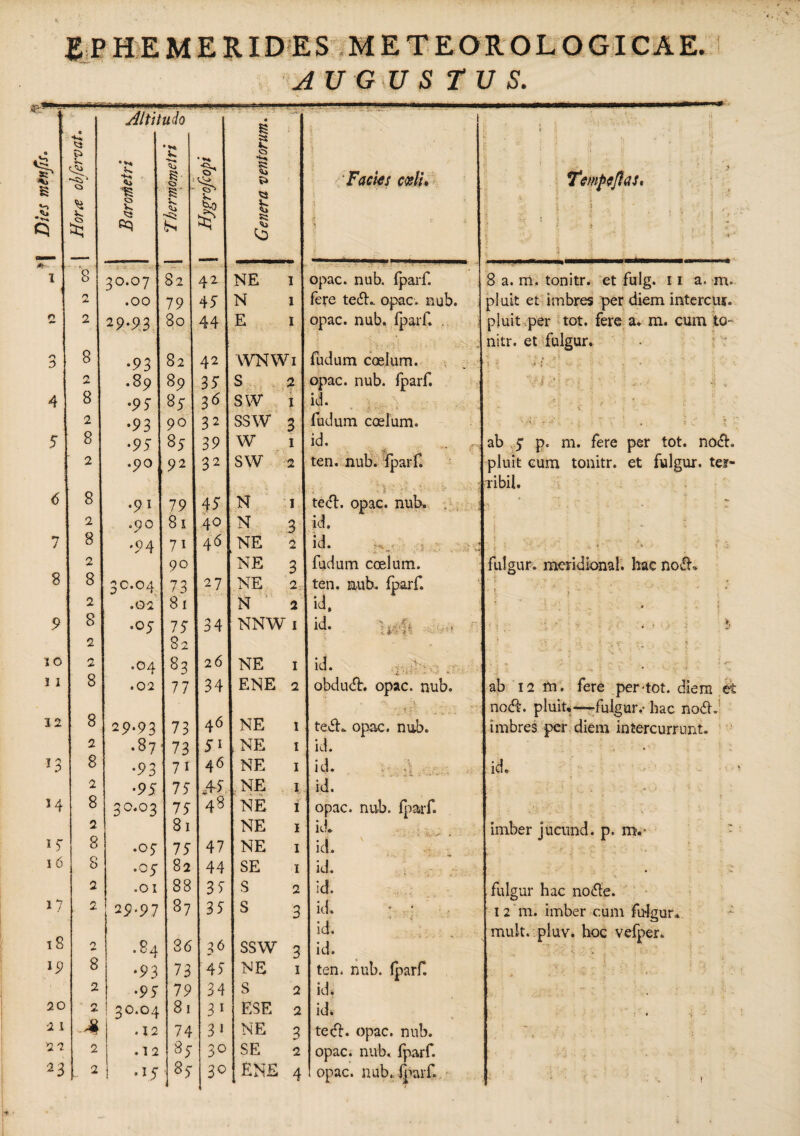 EPHEMERIDES METEOROLOGICAE.
AUGUSTUS.
Dies mensis. Horæ observat. Altitudo Barometri Thermometri Hygroscopi Genera ventorum. Facies cœli. Tempestas.
1 8 30.07 82 42 NE 1 opac. nub. ſparſ. 8 a. m. tonitr. et fulg. 11 a. m.
2 .00 79 45 N 1 fere tect. opac. nub. pluit et imbres per diem intercur.
2 2 29.93 80 44 E 1 opac. nub. ſparſ. pluit per tot. fere a. m. cum to-
nitr. et fulgur.
3 8 .93 82 42 WNW1 ſudum cœlum.
2 .89 89 35 S 2 opac. nub. ſparſ.
4 8 .95 85 36 SW 1 id.
2 .93 90 32 SSW 3 ſudum cœlum.
5 8 .95 85 39 W 1 id. ab 5 p. m. fere per tot. noct.
2 .90 92 32 SW 2 ten. nub. ſparſ. pluit cum tonitr. et fulgur. ter-
ribil.
6 8 .91 79 45 N 1 tect. opac. nub.
2 .90 81 40 N 3 id.
7 8 .94 71 46 NE 2 id.
2 90 NE 3 ſudum cœlum. fulgur. meridional. hac noct.
8 8 30.04 73 27 NE 2 ten. nub. ſparſ.
2 .02 81 N 2 id.
9 8 .05 75 34 NNW 1 id.
2 82
10 2 .04 83 26 NE 1 id.
11 8 .02 77 34 ENE 2 obduct. opac. nub. ab 12 m. fere per tot. diem et
noct. pluit.—fulgur. hac noct.
12 8 29.93 73 46 NE 1 tect. opac. nub. imbres per diem intercurrunt.
2 .87 73 51 NE 1 id.
13 8 .93 71 46 NE 1 id. id.
2 .95 75 45 NE 1 id.
14 8 30.03 75 48 NE 1 opac. nub. ſparſ.
2 81 NE 1 id. imber jucund. p. m.
15 8 .05 75 47 NE 1 id.
16 8 .05 82 44 SE 1 id.
2 .01 88 35 S 2 id. fulgur hac nocte.
17 2 29.97 87 35 S 3 id. 12 m. imber cum fulgur.
id. mult. pluv. hoc veſper.
18 2 .84 86 36 SSW 3 id.
19 8 .93 73 45 NE 1 ten. nub. ſparſ.
2 .95 79 34 S 2 id.
20 2 30.04 81 31 ESE 2 id.
21 8 .12 74 31 NE 3 tect. opac. nub.
22 2 .12 85 30 SE 2 opac. nub. ſparſ.
23 2 .15 85 30 ENE 4 opac. nub. ſparſ.